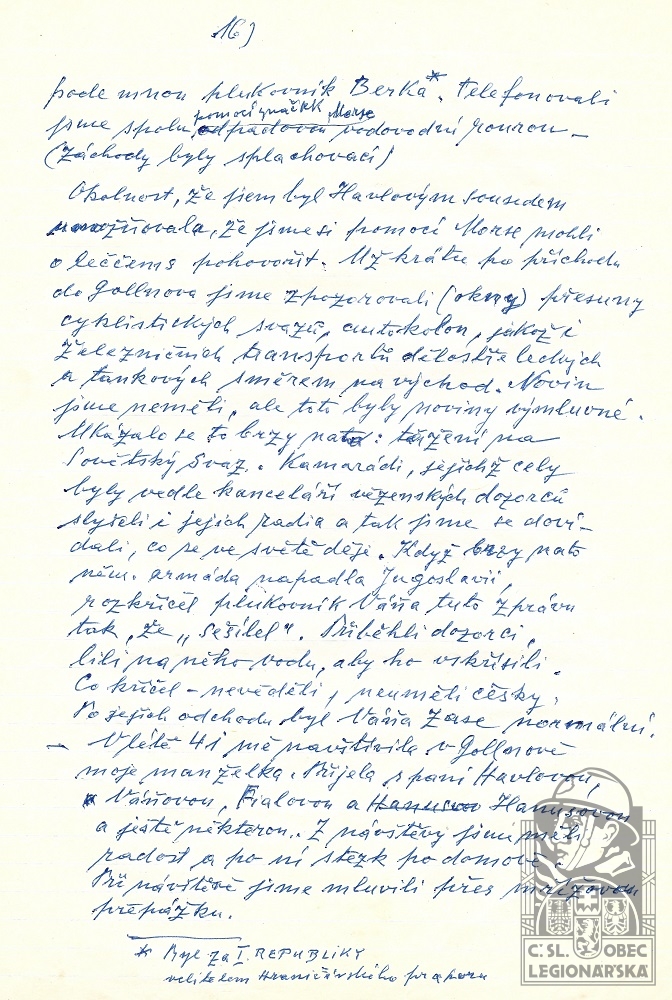 16)
pode mnou plukovník Berka*. Telefonovali
pomocí značek Morse
jsme spolu odpadovou vodovodní rourou –
(Záchody byly splachovací)
Okolnost, že jsem byl Havlovým sousedem
umožňovala, že jsme si pomocí Morse mohli
o lecčems pohovořit. Už krátce po příchodu
do Gollnova jsme zpozorovali (okny) přesuny
cyklistických svazů, autokolon, jakož i
železničních transportů dělostřeleckých
a tankových směrem na východ. Novin
jsme neměli, ale toto byly noviny výmluvné.
Ukázalo se to brzy nato: tažení na
Sovětský Svaz. Kamarádi, jejichž cely
byly vedle kanceláří vězenských dozorců
slyšeli i jejich radia a tak jsme se dový-
dali, co se ve světě děje. Když brzy nato
něm. armáda napadla Jugoslavii,
rozkřičel plukovník Váňa tuto zprávu
tak, že „sešílel". Přiběhli dozorci,
lili na něho vodu, aby ho vzkřísili.
Co křičel – nevěděli, neuměli česky.
Po jejich odchodu byl Váňa zase normální.
– V létě 41 mě navštívila v Gollnově
moje manželka. Přijela s paní Havlovou,
Váňovou, Fialovou a Hanusovou
a ještě některou. Z návštěvy jsme měli
radost a po ní stesk po domově.
Při návštěvě jsme mluvili přes mřížovou
přepážku.
* Byl za I. REPUBLIKY
velitelem Hraničářského praporu
Č.SL. OBEC
LEGIONÁŘSKÁ